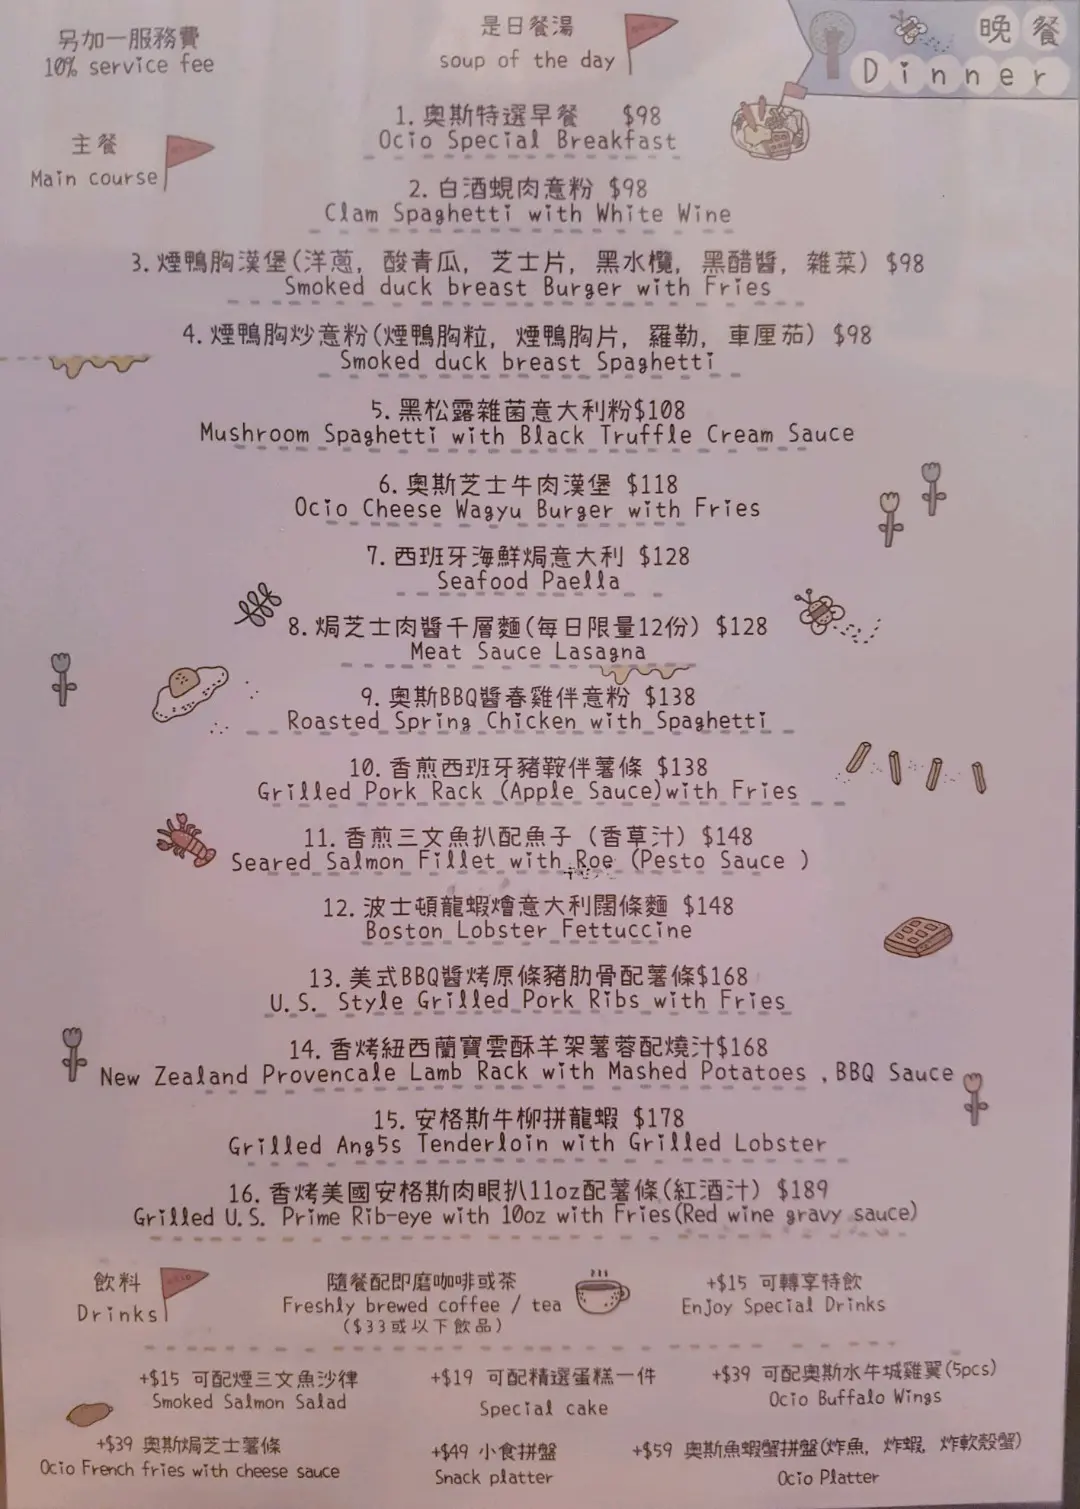 另加一服務費
10% service fee
是日餐湯
soup of the day
晚餐
Dinner
主餐
Main course
1. 奧斯特選早餐 $98
Ocio Special Breakfast
2. 白酒蜆肉意粉 $98
Clam Spaghetti with White Wine
3. 煙鴨胸漢堡(洋蔥, 酸青瓜, 芝士片, 黑水欖, 黑醋醬, 雜菜) $98
Smoked duck breast Burger with Fries
4. 煙鴨胸炒意粉(煙鴨胸粒, 煙鴨胸片, 羅勒, 車厘茄) $98
Smoked duck breast Spaghetti
5. 黑松露雜菌意大利粉$108
Mushroom Spaghetti with Black Truffle Cream Sauce
6. 奧斯芝士牛肉漢堡 $118
Ocio Cheese Wagyu Burger with Fries
7. 西班牙海鮮焗意大利 $128
Seafood Paella
8. 焗芝士肉醬千層麵(每日限量12份) $128
Meat Sauce Lasagna
9. 奧斯BBQ醬春雞伴意粉 $138
Roasted Spring Chicken with Spaghetti
10. 香煎西班牙豬鞍伴薯條 $138
Grilled Pork Rack (Apple Sauce)with Fries
11. 香煎三文魚扒配魚子 (香草汁) $148
Seared Salmon Fillet with Roe (Pesto Sauce )
12. 波士頓龍蝦燴意大利闊條麵 $148
Boston Lobster Fettuccine
13. 美式BBQ醬烤原條豬肋骨配薯條$168
U.S. Style Grilled Pork Ribs with Fries
14. 香烤紐西蘭寶雲酥羊架薯蓉配燒汁$168
New Zealand Provencale Lamb Rack with Mashed Potatoes , BBQ Sauce
15. 安格斯牛柳拼龍蝦 $178
Grilled Ang5s Tenderloin with Grilled Lobster
16. 香烤美國安格斯肉眼扒11oz配薯條(紅酒汁) $189
Grilled U.S. Prime Rib-eye with 10oz with Fries(Red wine gravy sauce)
飲料
Drinks
隨餐配即磨咖啡或茶
Freshly brewed coffee / tea
($33或以下飲品)
+$15 可轉享特飲
Enjoy Special Drinks
+$15 可配煙三文魚沙律
Smoked Salmon Salad
+$19 可配精選蛋糕一件
Special cake
+$39 可配奧斯水牛城雞翼(5pcs)
Ocio Buffalo Wings
+$39 奧斯焗芝士薯條
Ocio French fries with cheese sauce
+$49 小食拼盤
Snack platter
+$59 奧斯魚蝦蟹拼盤(炸魚, 炸蝦, 炸軟殼蟹)
Ocio Platter